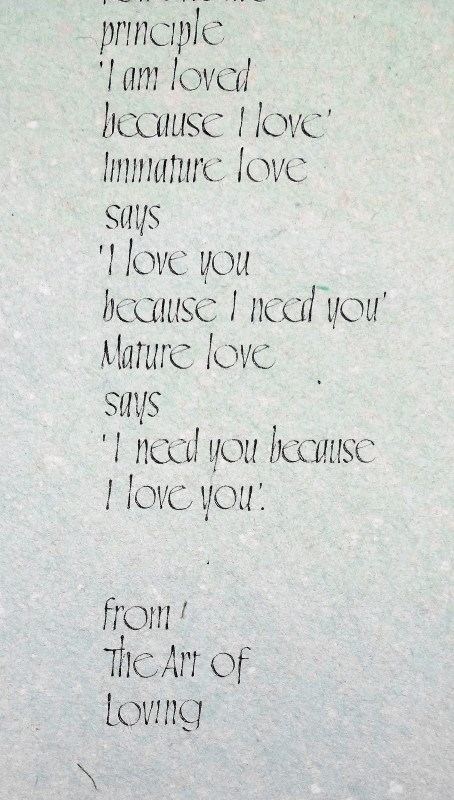 principle
'I am loved
because I love'
Immature love
says
'I love you
because I need you'
Mature love
says
'I need you because
I love you'.
from
The Art of
Loving